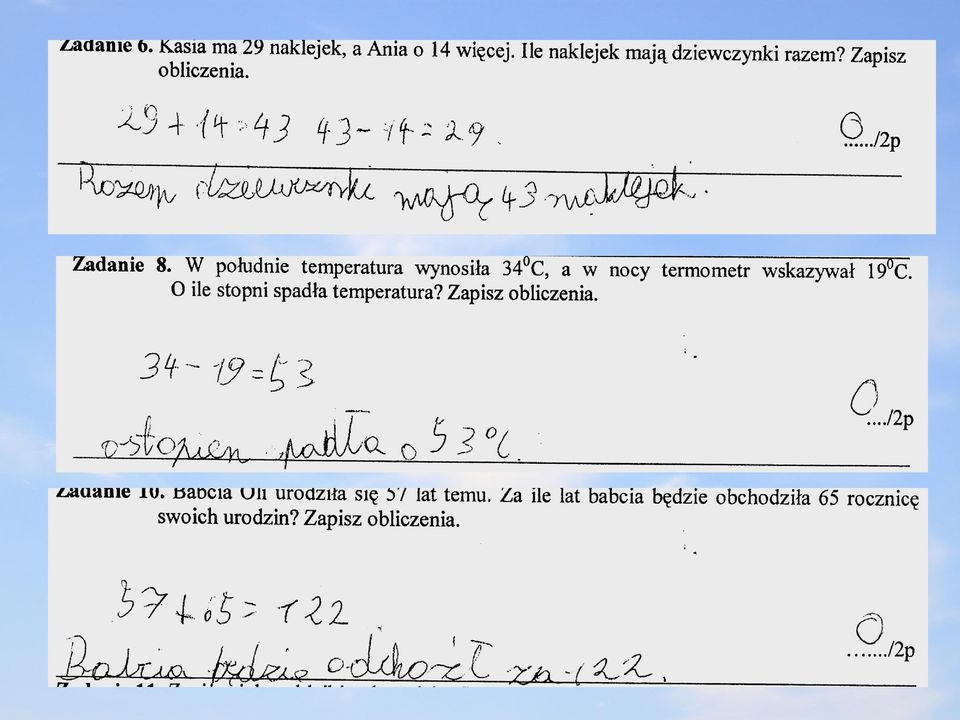 Zadanie 6. Kasia ma 29 naklejek, a Ania o 14 więcej. Ile naklejek mają dziewczynki razem? Zapisz
obliczenia.
29 + 14 = 43 43 - 14 = 29.
0
....../2p
Rozem dziewrzonki mają 43 naklejek.
Zadanie 8. W południe temperatura wynosiła 34⁰C, a w nocy termometr wskazywał 19⁰C.
O ile stopni spadła temperatura? Zapisz obliczenia.
34 - 19 = 53
0
..../2p
ostopien padła o 53⁰C.
Zadanie 10. Babcia Oli urodziła się 57 lat temu. Za ile lat babcia będzie obchodziła 65 rocznicę
swoich urodzin? Zapisz obliczenia.
57 + 65 = 122
0
......./2p
Babcia będzie odchoźł za 122.